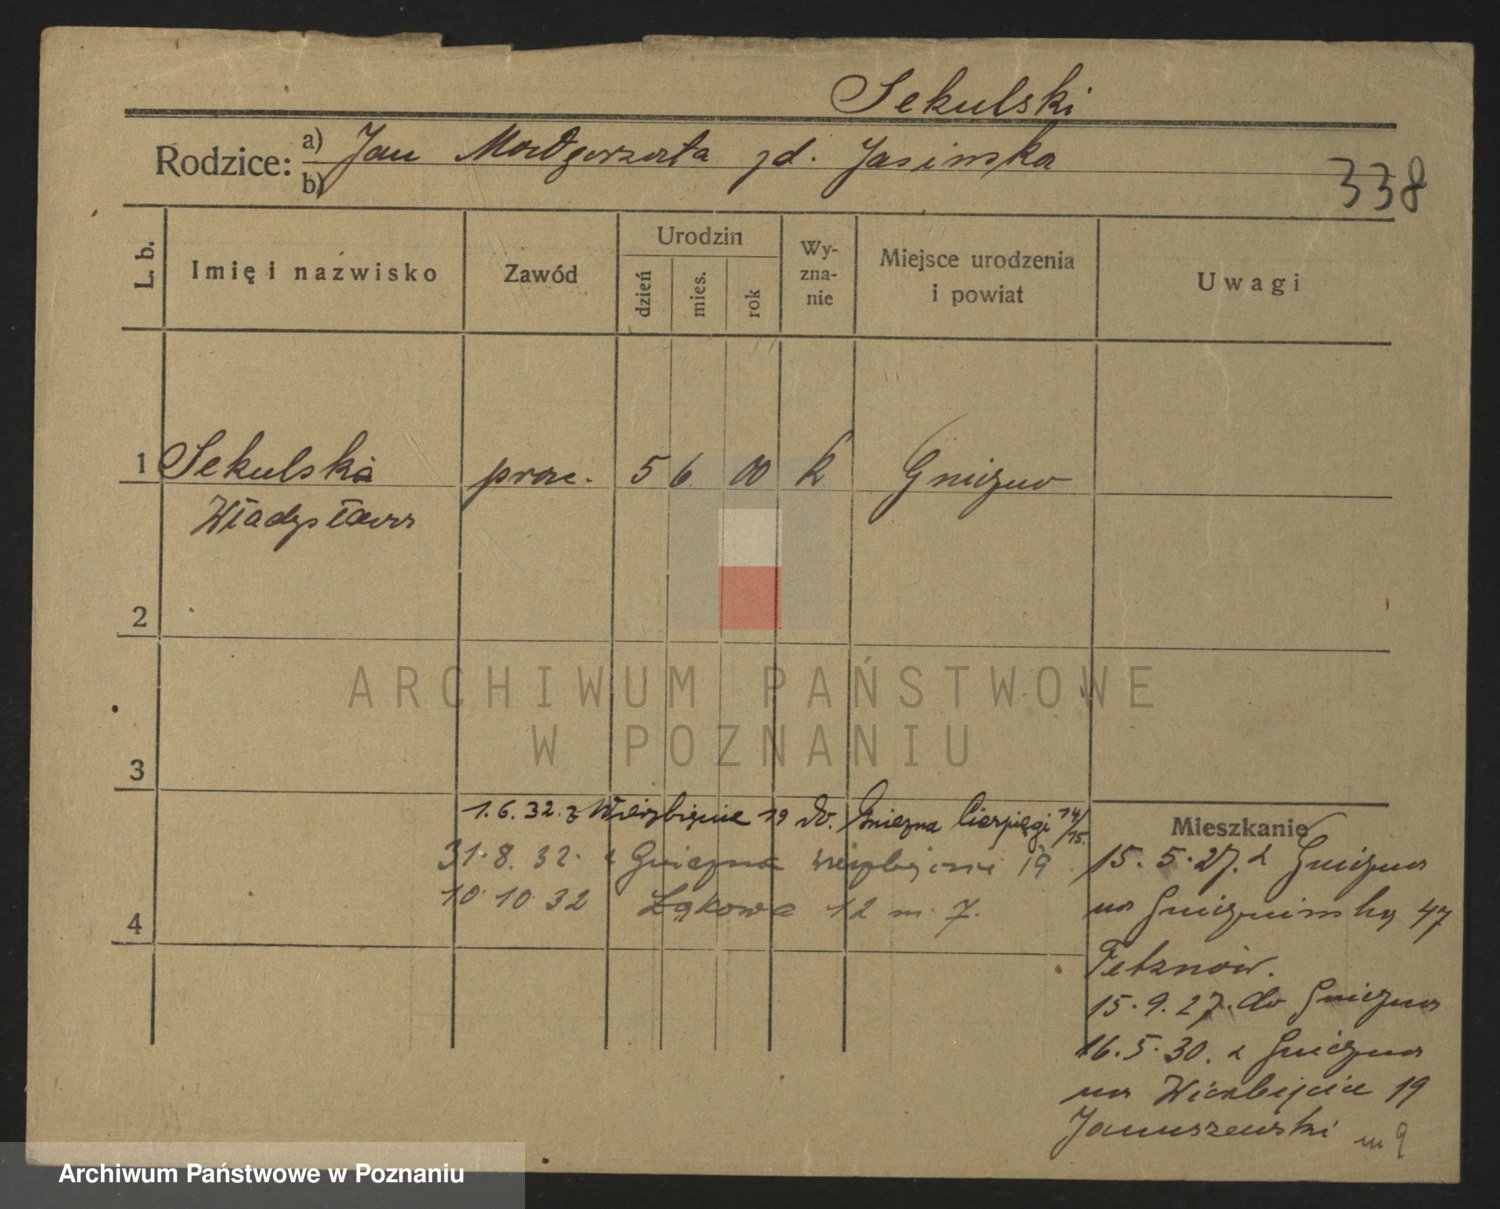 Sekulski
Rodzice: a) Jan Małgorzata zd. Jasinska
b)
338
L. b. Imię i nazwisko Zawód Urodzin dzień mies. rok Wy-zna-nie Miejsce urodzenia i powiat Uwagi
1 Sekulski prac. 5 6 00 k Gniezno
Władysław
2
3
ARCHIWUM PAŃSTWOWE
W POZNANIU
1.6.32. z Wierzbięcic 19 do Gniezna Cierpięgi 14/15.
31.8.32. z Gniezna Wierzbięcice 19
10.10.32 Łąkowa 12 m. 7.
4
Mieszkanie
15.5.27. z Gniezna
na Gnieznienską 47
15.9.27. do Gniezna
16.5.30. z Gniezna
na Wierzbięcice 19
Januszewski m 9
Archiwum Państwowe w Poznaniu